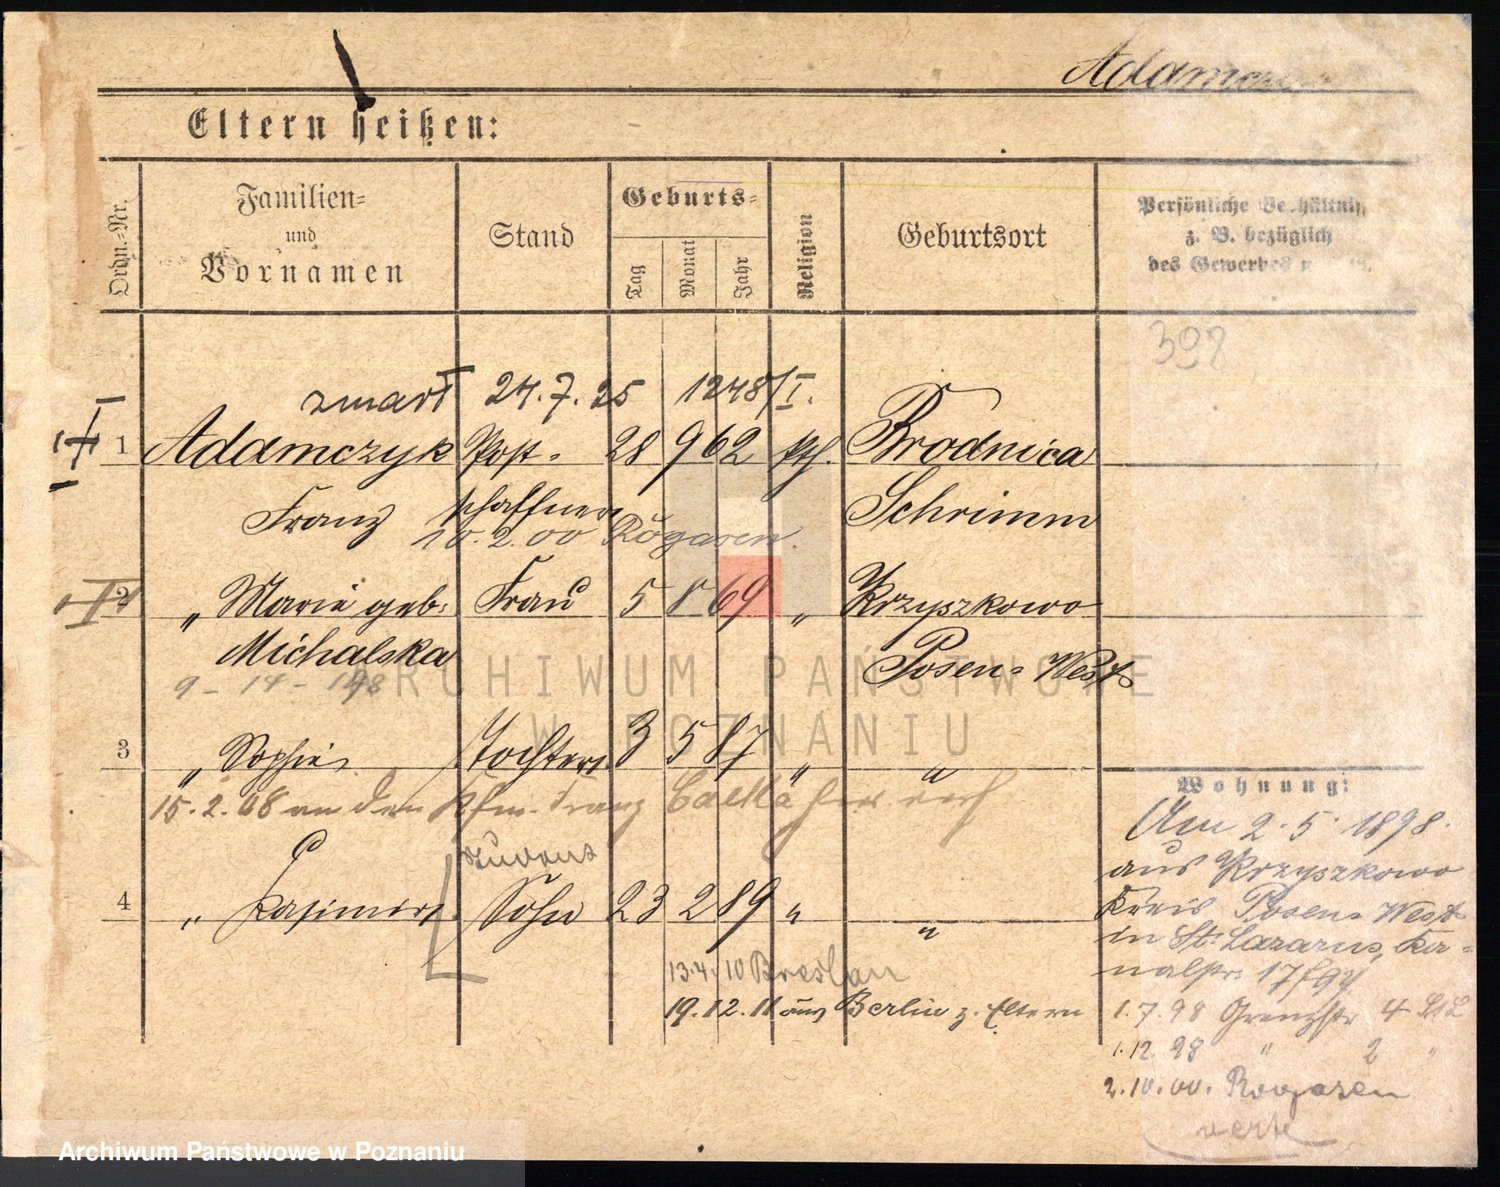 Adamczyk
Eltern heißen:
Ordn.-Nr.
Familien-
und
Vornamen
Stand
Geburts-
Tag
Monat
Jahr
Religion
Geburtsort
Persönliche Verhältnis
z. B. bezüglich
des Gewerbes
398
zmarł 24.7.25 1248/I.
1 Adamczyk Post- 28 9 62 kth. Brodnica
Franz schaffner Schrimm
10.2.00 Rogasen.
2 „ Marie geb. Frau 5 8 69 „ Krzyszkowo
Michalska Posen-West
9-14-198
ARCHIWUM PAŃSTWOWE
W POZNANIU
3 „ Sophie Tochter 3 5 87 „ „
15.2.08 an den Kfm. Franz
Wohnung:
Am 2.5.1898.
aus Krzyszkowo
Kreis Posen-West
in St. Lazarus,
Student
4 „ Kasimir Sohn 23 2 89 „ „
13.4.10 Breslau
19.12.11 aus Berlin z. Eltern
1.7.98 Grenzstr 4
1.12.98 „ 2 „
2.10.00. Rogasen
verte
Archiwum Państwowe w Poznaniu